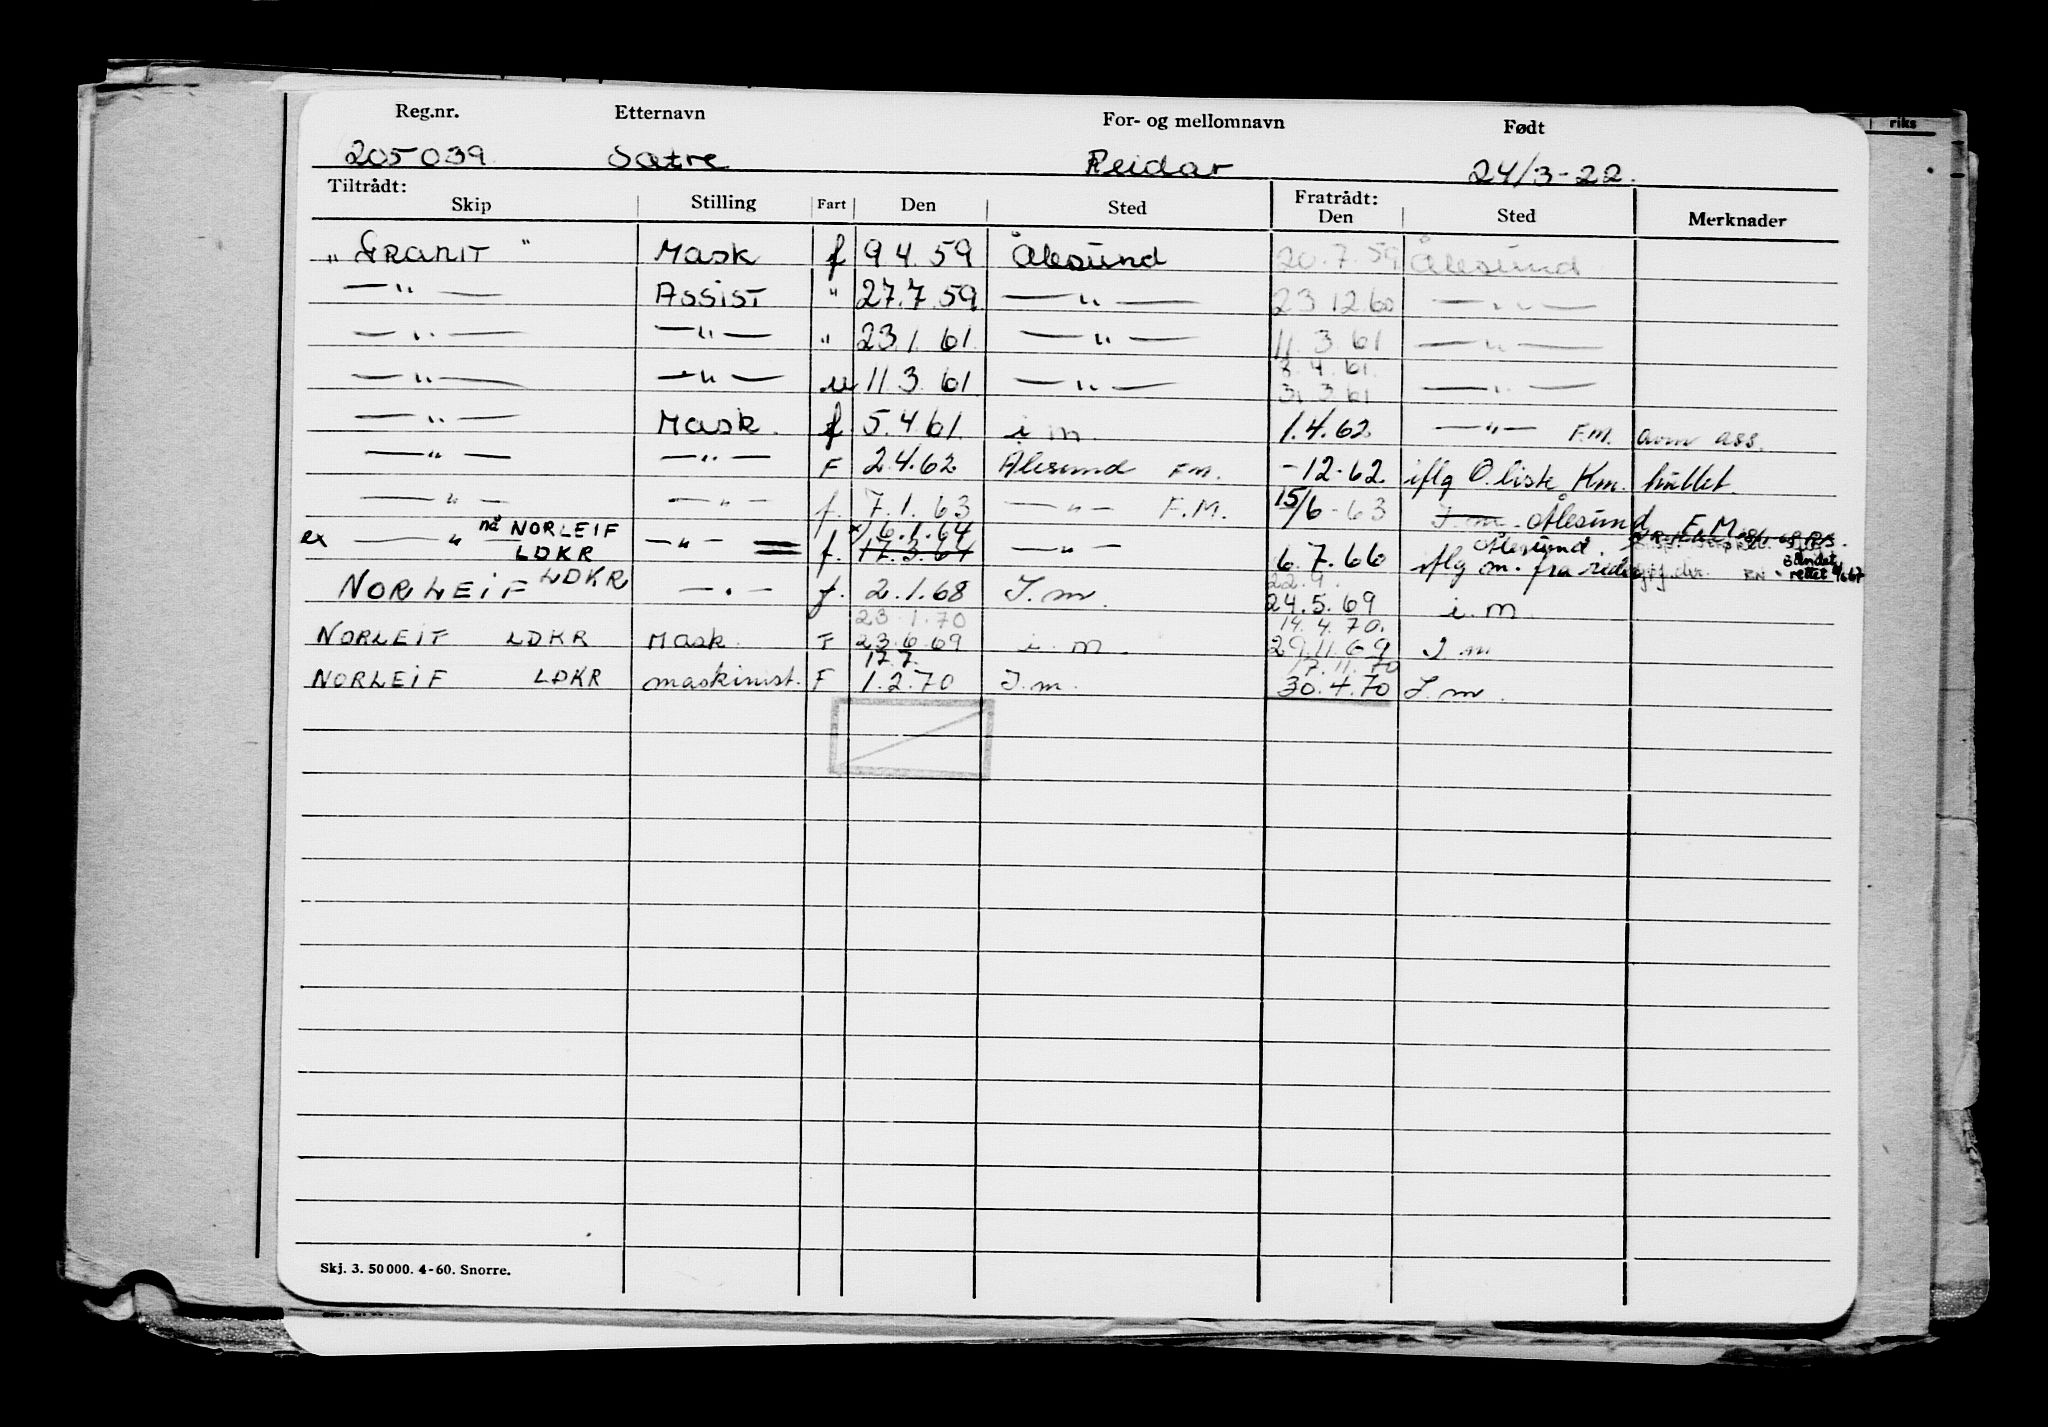 riks
Reg.nr. Etternavn For- og mellomnavn Født
205039 Sætre Reidar 24/3-22.
Tiltrådt: Fratrådt:
Skip Stilling Fart Den Sted Den Sted Merknader
„ GRANIT " Mask f 9 4. 59 Ålesund 20. 7. 59 Ålesund
— " — ASSIST " 27. 7. 59. — " — 23 12. 60 — " —
— " — — " — " 23. 1. 61. — " — 11. 3. 61 — " —
3. 4. 61.
— " — — " — u 11. 3. 61 — " — 31. 3. 61 — " —
— " — Mask. f 5. 4. 61. i. m. 1. 4. 62. — " — F.M. avm ass.
— " — — " — F 2. 4. 62. Ålesund F.M. - 12. 62. iflg O. liste Km.
— " — — " — f. 7. 1. 63 — " — F.M. 15/6 - 63 I. m. Ålesund F.M.
nå NORLEIF x) 6. 1. 64 Ålesund.
ex — " — LDKR — " — f. 17. 3. 64 — " — 6. 7. 66 iflg m. fra rettet
LDKR 22. 9.
NORLEIF — " — f. 2. 1. 68 I. m. 24. 5. 69 i. m.
23. 1. 70 14. 4. 70.
NORLEIF LDKR Mask. F 23. 6. 69 i. m. 29. 11. 69 I. m
17. 7. 17. 11. 70
NORLEIF LDKR maskinist. F 1. 2. 70 I. m. 30. 4. 70 I. m.
Skj. 3. 50 000. 4-60. Snorre.